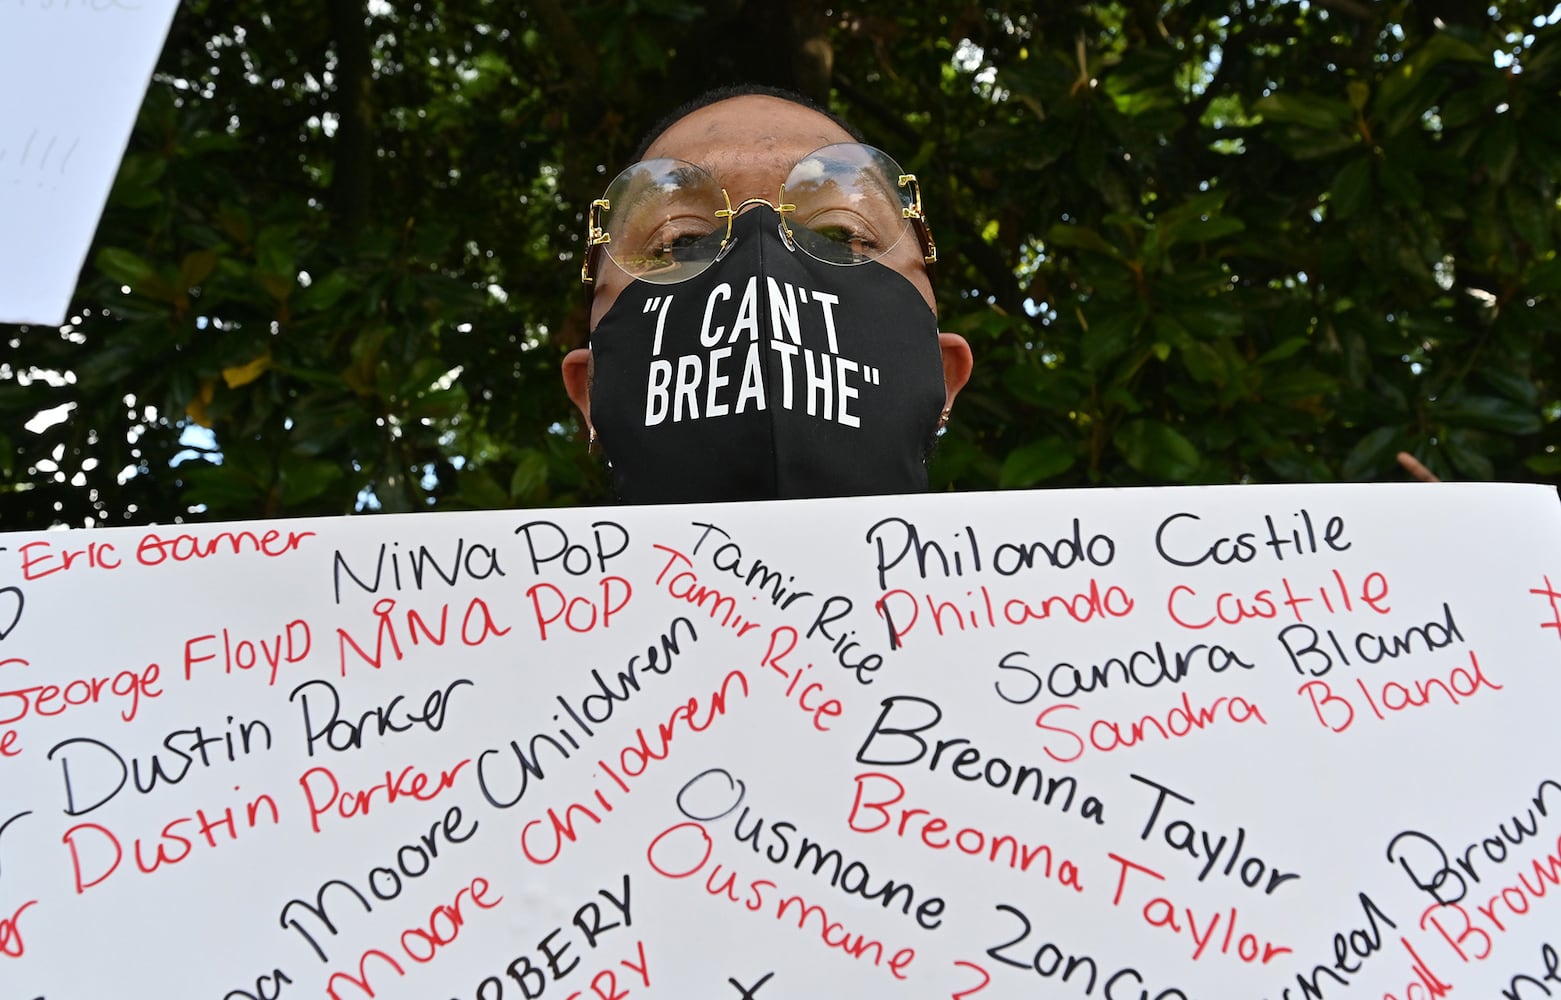 "I CAN'T
BREATHE"
Eric Garner
NiNa PoP
NiNa PoP
Tamir Rice
Tamir Rice
Philando Castile
Philando Castile
George FloyD
Sandra Bland
Sandra Bland
Dustin Parker
Dustin Parker
Moore Children
Moore children
Breonna Taylor
Breonna Taylor
Ousmane Zong
Ousmane Z
Brown
Brown